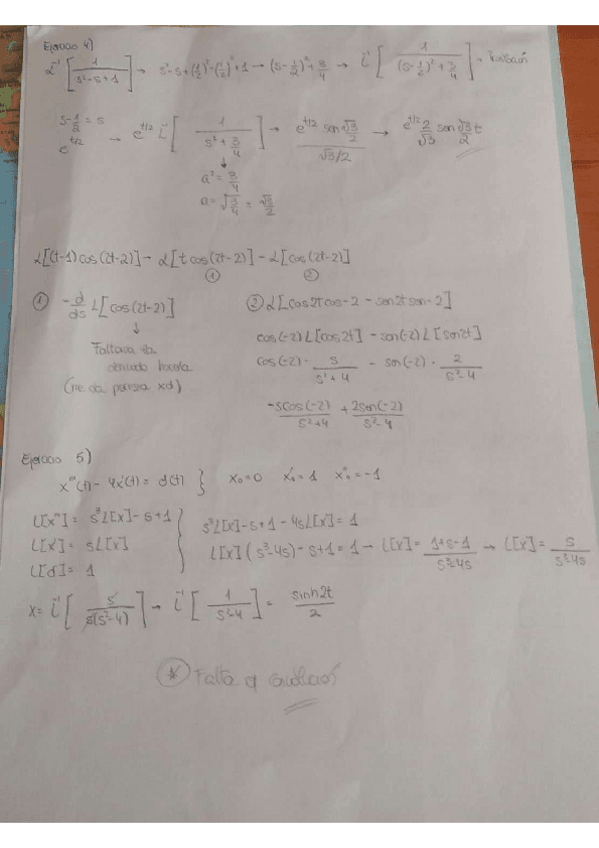 Ejercicio 4)
L⁻¹[1/(s²-s+1)] → s²-s+(1/2)²-(1/2)²+1 → (s-1/2)²+3/4 → L⁻¹[1/((s-1/2)²+3/4)] →
s-1/2 = s
e^(t/2) → e^(t/2) L⁻¹[1/(s²+3/4)] → (e^(t/2) sen √3/2)/(√3/2) → e^(t/2) 2/√3 sen √3t/2
↓
a² = 3/4
a = √(3/4) = √3/2
L[(t-1)cos(2t-2)] → L[t cos(2t-2)] - L[cos(2t-2)]
① ②
① -d/ds L[cos(2t-2)]
↓
Faltaria la
derivada
(me da pereza xd)
② L[cos2t cos-2 - sen2t sen-2]
cos(-2)L[cos2t] - sen(-2)L[sen2t]
cos(-2)· s/(s²+4) - sen(-2)· 2/(s²-4)
-scos(-2)/(s²+4) + 2sen(-2)/(s²-4)
Ejercicio 5)
x'''(t) - 4x'(t) = d(t) } x₀=0 x'₀=1 x''₀=-1
L[x'''] = s³L[x]-s+1
L[x'] = sL[x]
L[d] = 1
s³L[x]-s+1-4sL[x]=1
L[x](s³-4s)-s+1=1 → L[x]=(1+s-1)/(s³-4s) → L[x]=s/(s³-4s)
x= L⁻¹[s/(s(s²-4))] → L⁻¹[1/(s²-4)] = sinh2t/2
(*) Falta